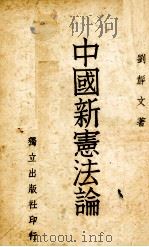 劉靜文著
中國新憲法論
獨立出版社印行